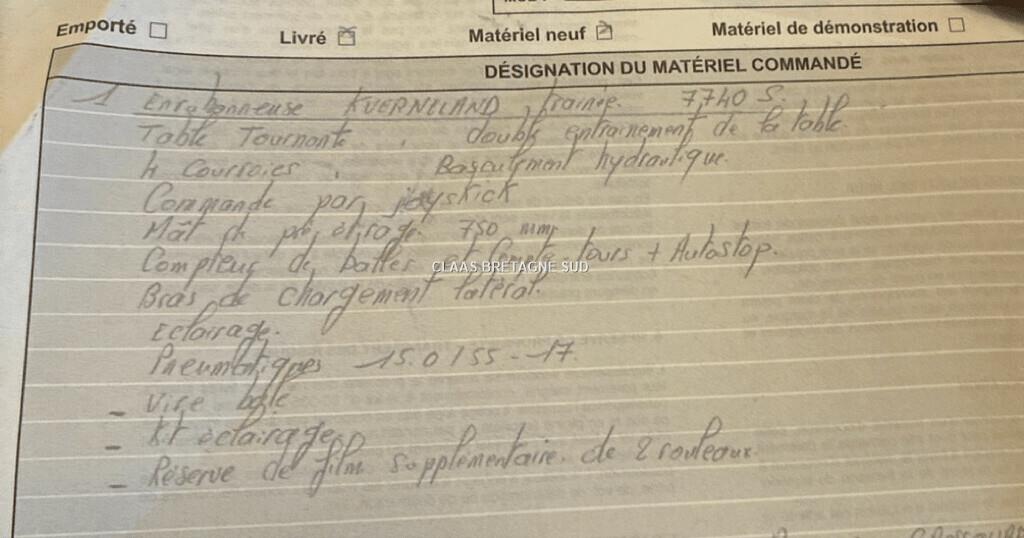 Emporté ☐ Livré ☒ Matériel neuf ☒ Matériel de démonstration ☐
DÉSIGNATION DU MATÉRIEL COMMANDÉ
1 Enrubanneuse KVERNELAND trainée 7740 S.
Table Tournante . double entrainement de la table.
4 Courroies . Basculement hydraulique.
Commande par joystick
Mât de pré étirage 750 mm
Compteur de balles tours + Autostop.
CLAAS BRETAGNE SUD
Bras de chargement latéral.
Eclairage.
Pneumatiques 15.0/55-17
- Vire balle
- Kit éclairage
- Réserve de film supplémentaire de 2 rouleaux